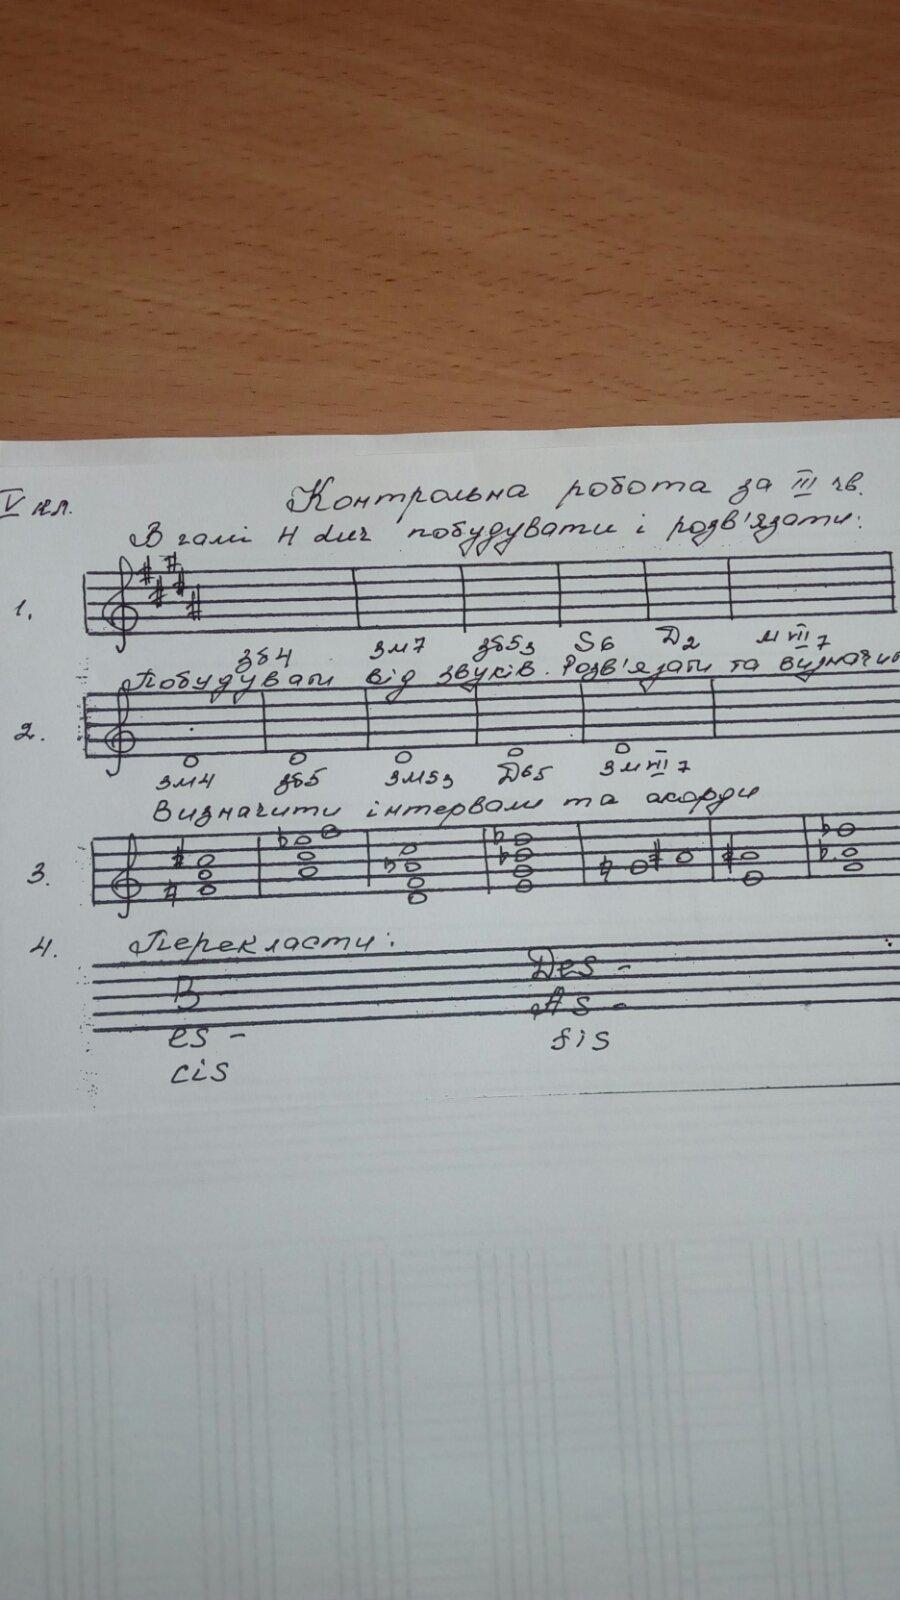 V кл.
Контрольна робота за III чв.
В гамі H dur побудувати і розв'язати:
1.
зб4 зм7 зб53 S6 D2 м VII 7
Побудувати від звуків. Розв'язати та
2.
зм4 зб5 зм53 D65 зм VII 7
Визначити інтервали та акорди
3.
4. Перекласти:
B Des -
es - As -
cis fis